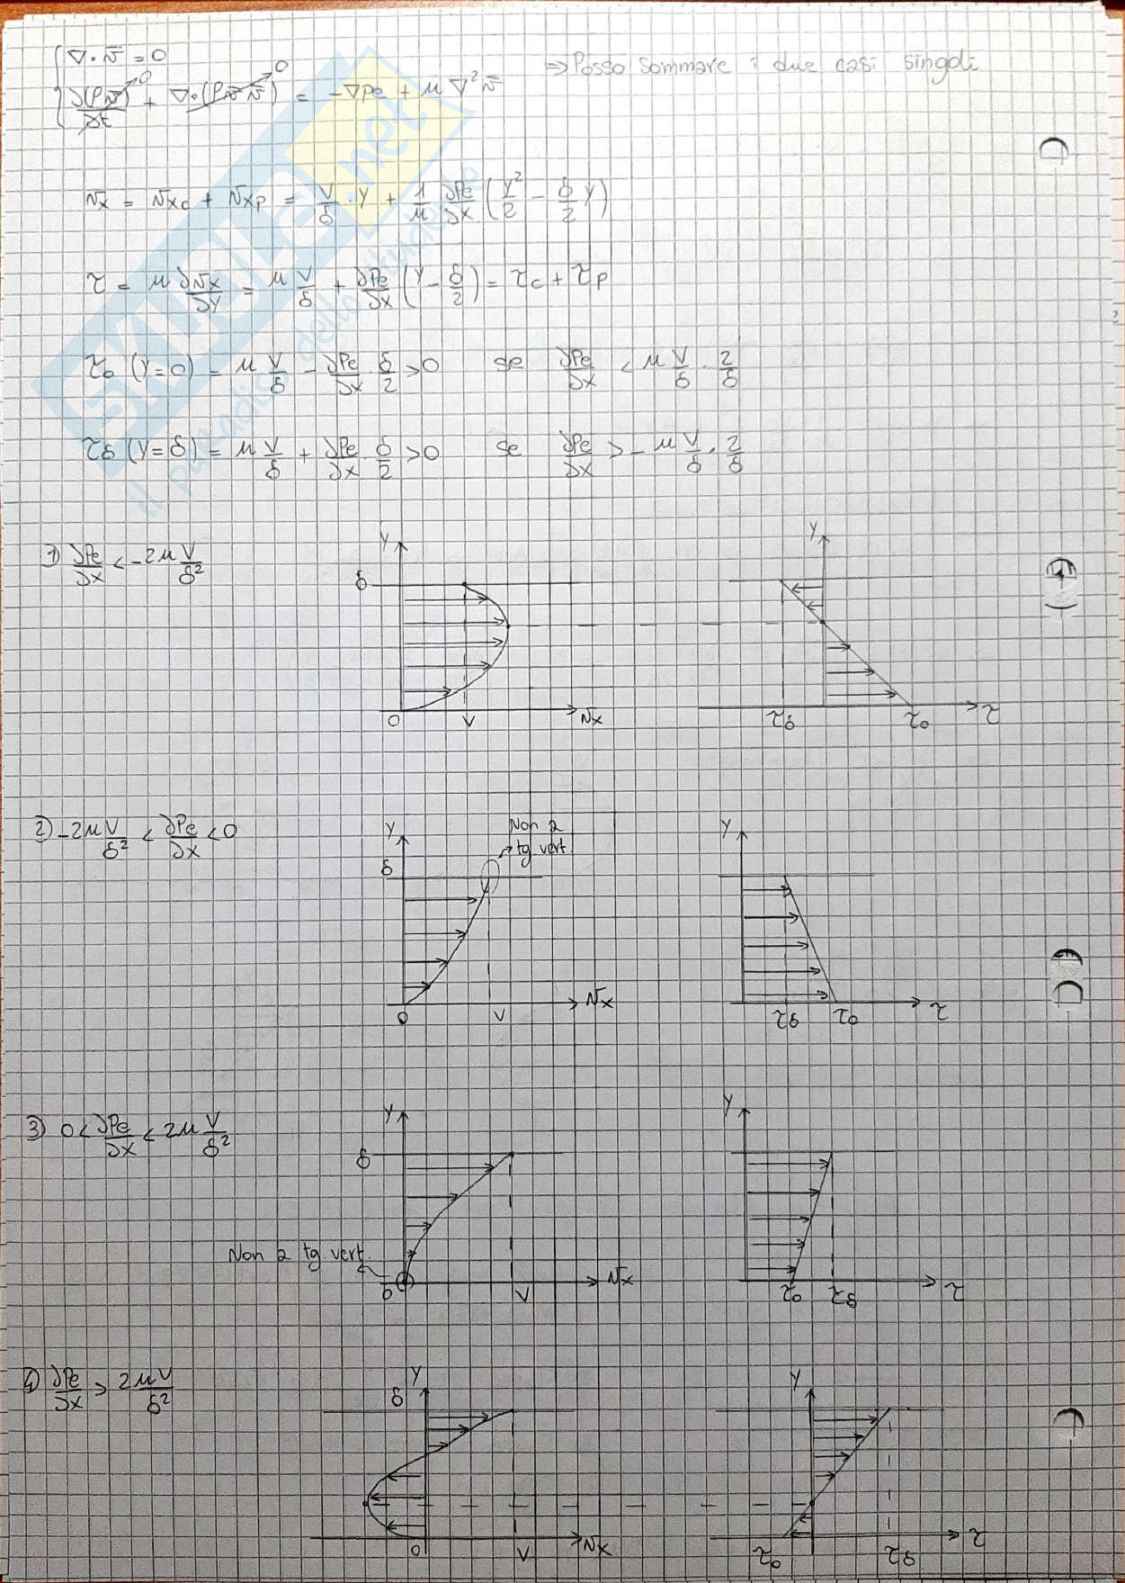 ∇·v̄ = 0
∂(ρv̄)/∂t →0 + ∇·(ρv̄v̄) →0 = -∇pe + μ∇²v̄ ⇒ Posso sommare i due casi singoli
vx = vxc + vxp = V/δ · y + 1/μ ∂Pe/∂x (y²/2 - δ/2 y)
τ = μ ∂vx/∂y = μ V/δ + ∂Pe/∂x (y - δ/2) = τc + τp
τ0 (y=0) = μ V/δ - ∂Pe/∂x δ/2 > 0 se ∂Pe/∂x < μ V/δ · 2/δ
τδ (y=δ) = μ V/δ + ∂Pe/∂x δ/2 > 0 se ∂Pe/∂x > - μ V/δ · 2/δ
1) ∂Pe/∂x < -2μ V/δ²
y
δ
0 V vx
y
τδ τ0 τ
2) -2μ V/δ² < ∂Pe/∂x < 0
y
Non a
tg vert.
δ
0 V vx
y
τδ τ0 τ
3) 0 < ∂Pe/∂x < 2μ V/δ²
y
δ
Non a tg vert.
0 V vx
y
τ0 τδ τ
4) ∂Pe/∂x > 2μV/δ²
y
δ
0 V vx
y
τ0 τδ τ
SKUOLA.net